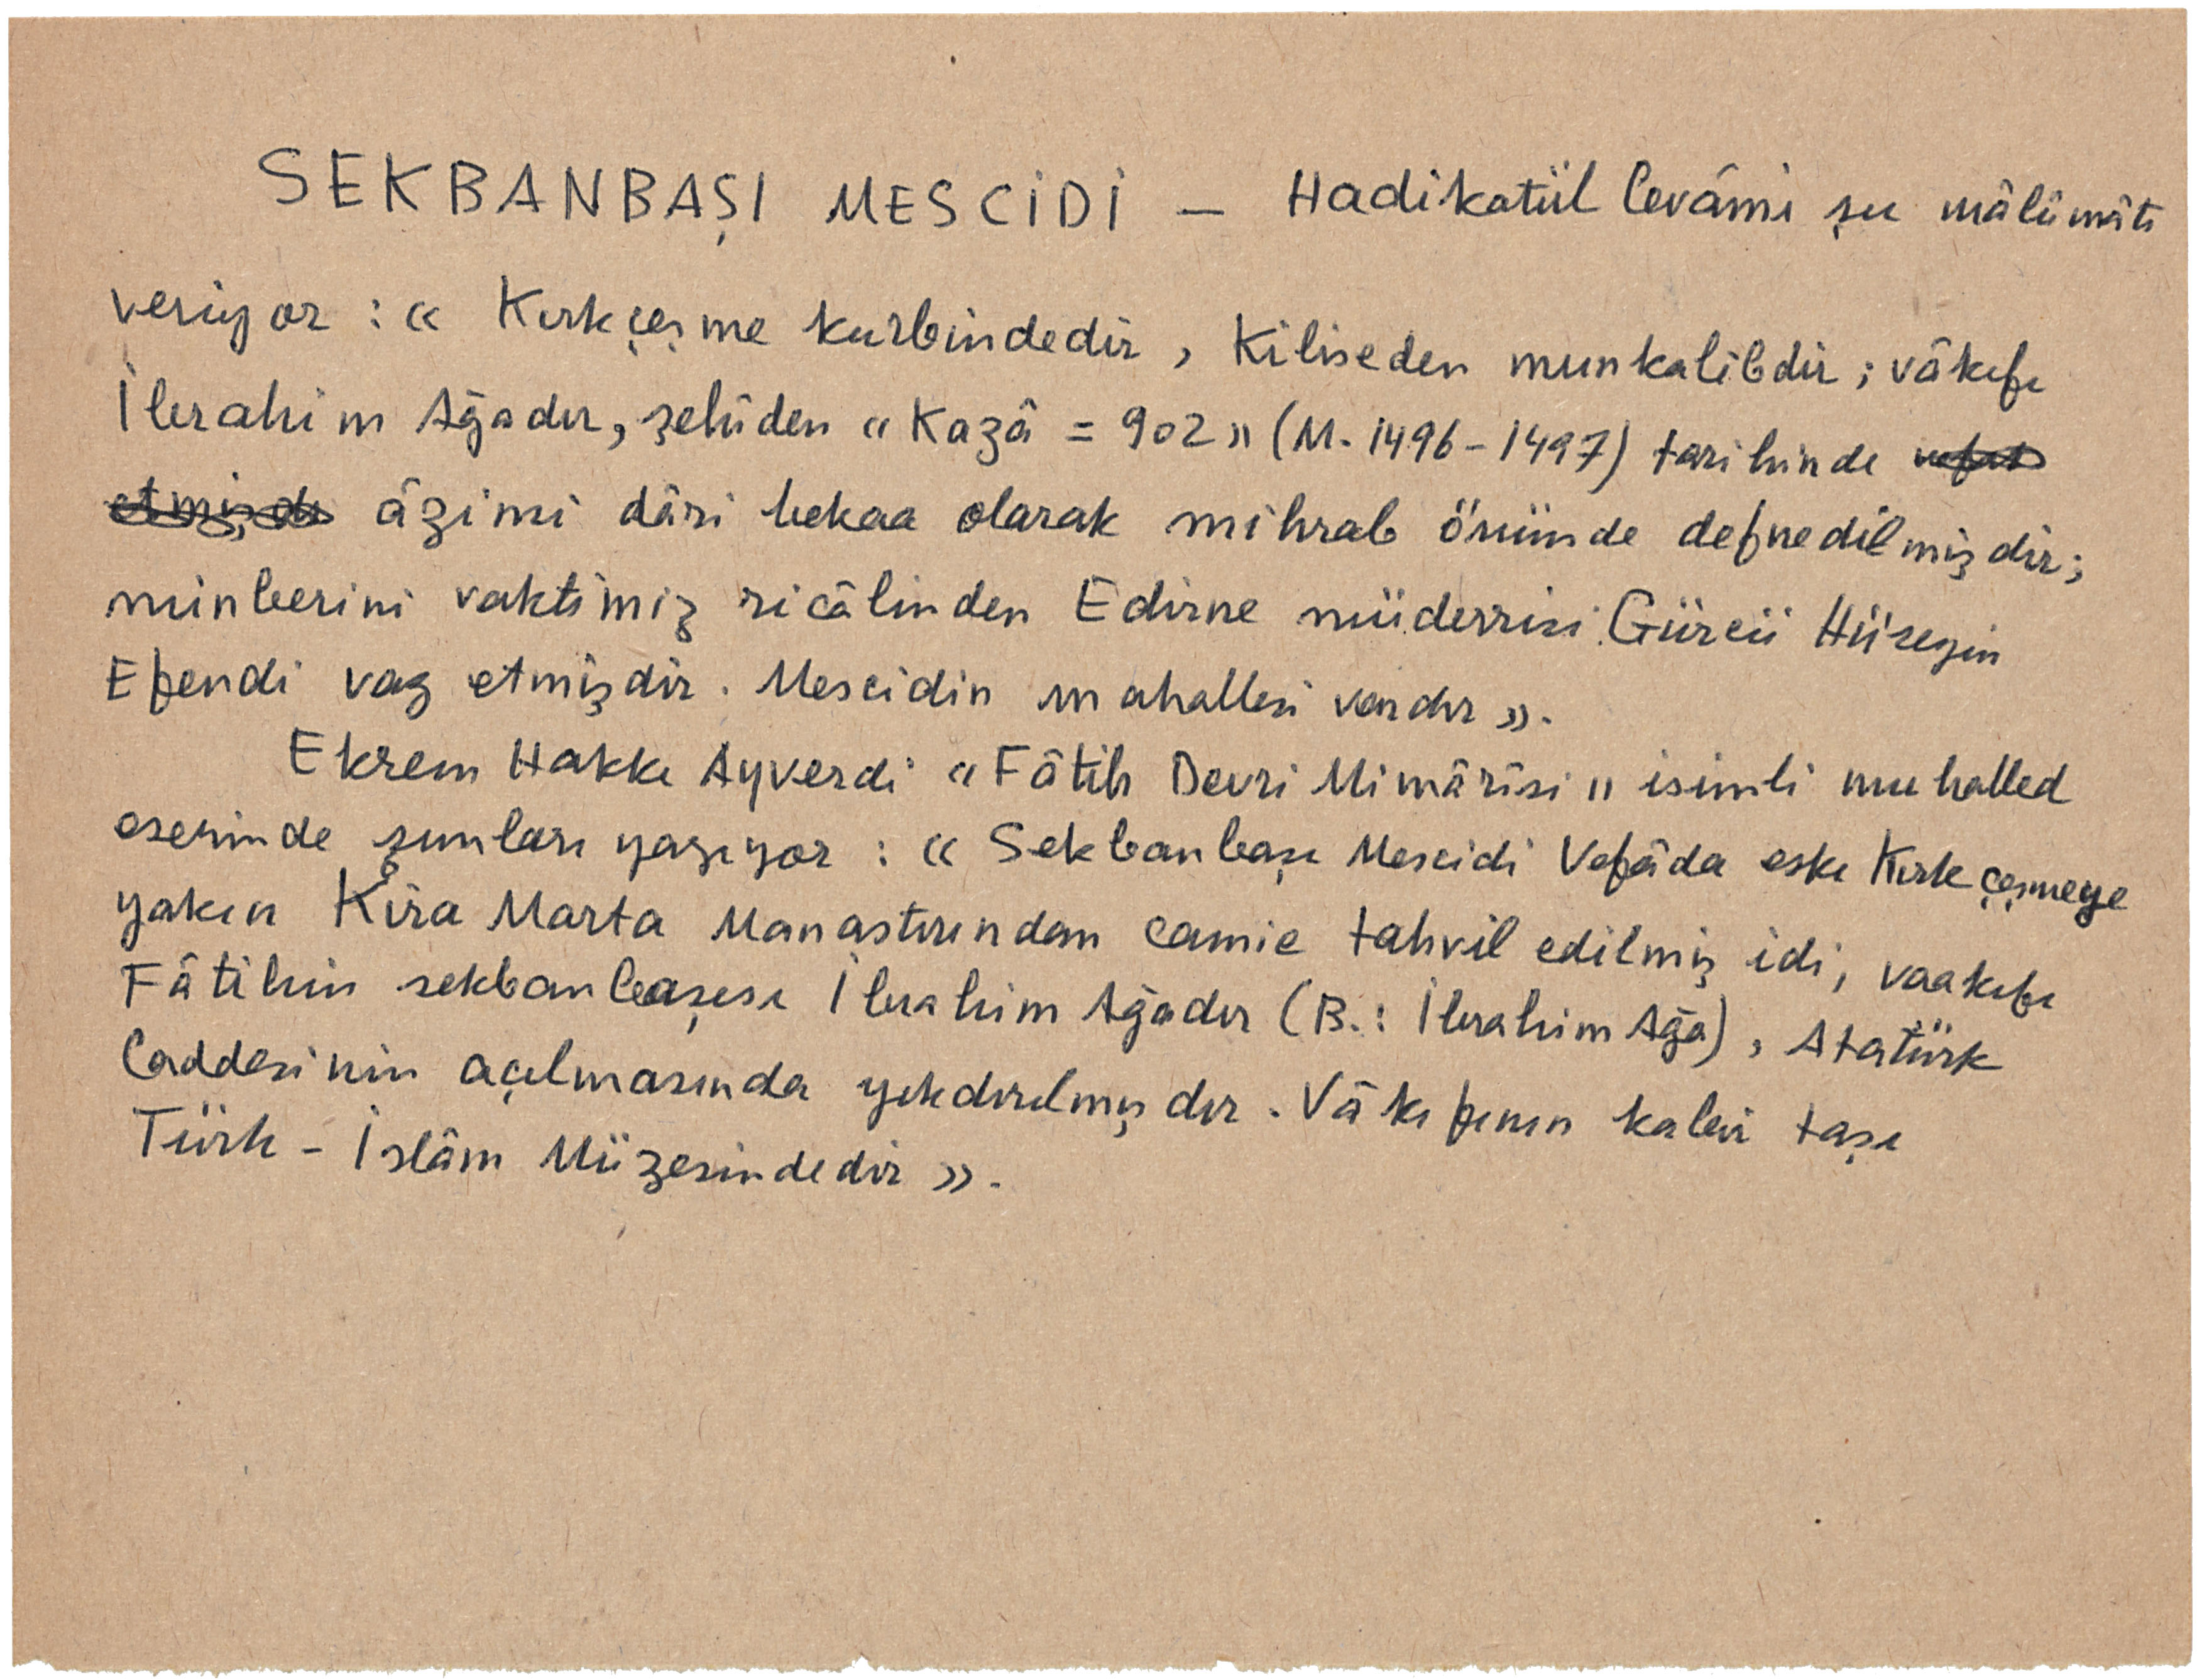 SEKBANBAŞI MESCİDİ — Hadikatül Cevâmi şu mâlûmâtı
veriyor : « Kırkçeşme kurbindedir, Kiliseden munkalibdir ; vâkıfı
İbrahim Ağadır, şehiden « Kazâ = 902 » (M. 1496-1497) tarihinde vefat
etmişdi âzimi dâri bekaa olarak mihrab önünde defnedilmişdir ;
minberini vaktimiz ricâlinden Edirne müderrisi Gürcü Hüseyin
Efendi vaz etmişdir. Mescidin mahallesi vardır ».
Ekrem Hakkı Ayverdi « Fâtih Devri Mimârîsi » isimli muhalled
eserinde şunları yazıyor : « Sekbanbaşı Mescidi Vefâda eski Kırkçeşmeye
yakın Kira Marta Manastırından camie tahvil edilmiş idi, vaakıfı
Fâtihin sekbanbaşısı İbrahim Ağadır (B. : İbrahim Ağa), Atatürk
Caddesinin açılmasında yıkdırılmışdır. Vâkıfının kabir taşı
Türk - İslâm Müzesindedir ».